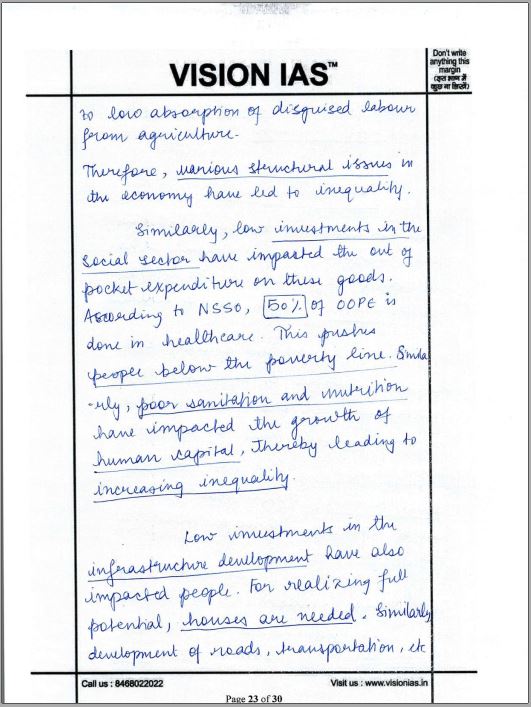 VISION IAS™
Don't write
anything this
margin
(इस भाग में
कुछ ना लिखें)
to low absorption of disguised labour
from agriculture.
Therefore, various structural issues in
the economy have led to inequality.
Similarly, low investments in the
social sector have impacted the out of
pocket expenditure on these goods.
According to NSSO, 50% of OOPE is
done in healthcare. This pushes
people below the poverty line. Simila
-rly, poor sanitation and nutrition
have impacted the growth of
human capital, thereby leading to
increasing inequality.
Low investments in the
infrastructure development have also
impacted people. For realizing full
potential, houses are needed. Similarly
development of roads, transportation, etc
Call us : 8468022022
Visit us : www.visionias.in
Page 23 of 30